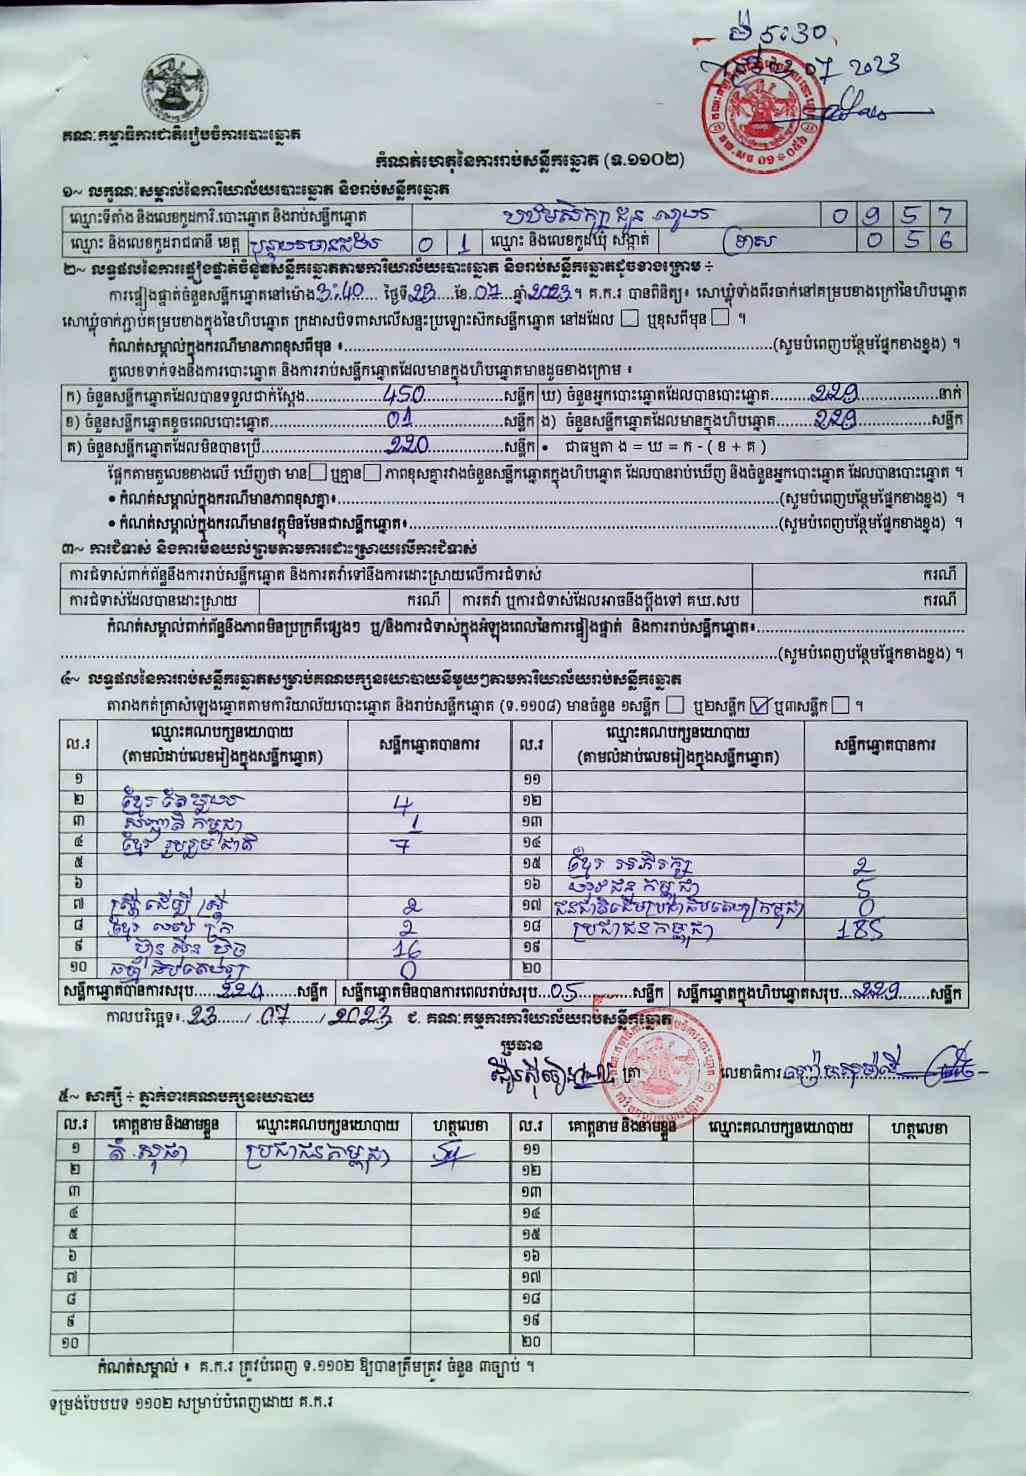 ម៉ ៥:៣០
07 2023
គណៈកម្មាធិការជាតិរៀបចំការបោះឆ្នោត
កំណត់ហេតុនៃការរាប់សន្លឹកឆ្នោត (ទ.១១០២)
១~ លក្ខណៈសម្គាល់នៃការិយាល័យបោះឆ្នោត និងរាប់សន្លឹកឆ្នោត
ឈ្មោះទីតាំង និងលេខកូដការិ.បោះឆ្នោត និងរាប់សន្លឹកឆ្នោត 0 9 5 7
ឈ្មោះ និងលេខកូដរាជធានី ខេត្ត បន្ទាយមានជ័យ 0 1 ឈ្មោះ និងលេខកូដឃុំ សង្កាត់ 0 5 6
២~ លទ្ធផលនៃការផ្ទៀងផ្ទាត់ចំនួនសន្លឹកឆ្នោតតាមការិយាល័យបោះឆ្នោត និងរាប់សន្លឹកឆ្នោតដូចខាងក្រោម ÷
ការផ្ទៀងផ្ទាត់ចំនួនសន្លឹកឆ្នោតនៅម៉ោង 3:40 ថ្ងៃទី 23 ខែ 07 ឆ្នាំ 2023 ។ គ.ក.រ បានពិនិត្យ៖ សោឃ្មុំទាំងពីរចាក់នៅគម្របខាងក្រៅនៃហិបឆ្នោត
សោឃ្មុំចាក់ភ្ជាប់គម្របខាងក្នុងនៃហិបឆ្នោត ក្រដាសបិទពាសលើសន្ទះប្រឡោះស៊កសន្លឹកឆ្នោត នៅដដែល ☐ ឬខុសពីមុន ☐ ។
កំណត់សម្គាល់ក្នុងករណីមានភាពខុសពីមុន ៖ (សូមបំពេញបន្ថែមផ្នែកខាងខ្នង) ។
តួលេខទាក់ទងនឹងការបោះឆ្នោត និងការរាប់សន្លឹកឆ្នោតដែលមានក្នុងហិបឆ្នោតមានដូចខាងក្រោម ៖
ក) ចំនួនសន្លឹកឆ្នោតដែលបានទទួលជាក់ស្តែង 450 សន្លឹក ឃ) ចំនួនអ្នកបោះឆ្នោតដែលបានបោះឆ្នោត 229 នាក់
ខ) ចំនួនសន្លឹកឆ្នោតខូចពេលបោះឆ្នោត 01 សន្លឹក ង) ចំនួនសន្លឹកឆ្នោតដែលមានក្នុងហិបឆ្នោត 229 សន្លឹក
គ) ចំនួនសន្លឹកឆ្នោតដែលមិនបានប្រើ 220 សន្លឹក • ជាធម្មតា ង = ឃ = ក - ( ខ + គ )
ផ្អែកតាមតួលេខខាងលើ ឃើញថា មាន ☐ ឬគ្មាន ☐ ភាពខុសគ្នារវាងចំនួនសន្លឹកឆ្នោតក្នុងហិបឆ្នោត ដែលបានរាប់ឃើញ និងចំនួនអ្នកបោះឆ្នោត ដែលបានបោះឆ្នោត ។
• កំណត់សម្គាល់ក្នុងករណីមានភាពខុសគ្នា៖ (សូមបំពេញបន្ថែមផ្នែកខាងខ្នង) ។
• កំណត់សម្គាល់ក្នុងករណីមានវត្ថុមិនមែនជាសន្លឹកឆ្នោត៖ (សូមបំពេញបន្ថែមផ្នែកខាងខ្នង) ។
៣~ ការជំទាស់ និងការមិនយល់ព្រមតាមការដោះស្រាយលើការជំទាស់
ការជំទាស់ពាក់ព័ន្ធនឹងការរាប់សន្លឹកឆ្នោត និងការតវ៉ាទៅនឹងការដោះស្រាយលើការជំទាស់ ករណី
ការជំទាស់ដែលបានដោះស្រាយ ករណី ការតវ៉ា ឬការជំទាស់ដែលអាចនឹងប្តឹងទៅ គឃ.សប ករណី
កំណត់សម្គាល់ពាក់ព័ន្ធនឹងភាពមិនប្រក្រតីផ្សេងៗ ឬ/និងការជំទាស់ក្នុងអំឡុងពេលនៃការផ្ទៀងផ្ទាត់ និងការរាប់សន្លឹកឆ្នោត៖
(សូមបំពេញបន្ថែមផ្នែកខាងខ្នង) ។
៤~ លទ្ធផលនៃការរាប់សន្លឹកឆ្នោតសម្រាប់គណបក្សនយោបាយនីមួយៗតាមការិយាល័យរាប់សន្លឹកឆ្នោត
តារាងកត់ត្រាសំឡេងឆ្នោតតាមការិយាល័យបោះឆ្នោត និងរាប់សន្លឹកឆ្នោត (ទ.១១០៨) មានចំនួន ១សន្លឹក ☐ ឬ២សន្លឹក ☑ ឬ៣សន្លឹក ☐ ។
ល.រ ឈ្មោះគណបក្សនយោបាយ (តាមលំដាប់លេខរៀងក្នុងសន្លឹកឆ្នោត) សន្លឹកឆ្នោតបានការ ល.រ ឈ្មោះគណបក្សនយោបាយ (តាមលំដាប់លេខរៀងក្នុងសន្លឹកឆ្នោត) សន្លឹកឆ្នោតបានការ
១ ១១
២ ខ្មែរតែមួយ 4 ១២
៣ សញ្ជាតិកម្ពុជា 1 ១៣
៤ ខ្មែររួបរួមជាតិ 7 ១៤
៥ ១៥ ខ្មែរអភិរក្ស 2
៦ ១៦ យុវជនកម្ពុជា 5
៧ ស្ត្រីដើម្បីស្ត្រី 2 ១៧ ជនជាតិដើមប្រជាធិបតេយ្យកម្ពុជា 0
៨ ខ្មែរឈប់ក្រ 2 ១៨ ប្រជាជនកម្ពុជា 185
៩ ហ៊្វុនស៊ិនប៉ិច 16 ១៩
១០ ធម្មាធិបតេយ្យ 0 ២០
សន្លឹកឆ្នោតបានការសរុប 224 សន្លឹក សន្លឹកឆ្នោតមិនបានការពេលរាប់សរុប 05 សន្លឹក សន្លឹកឆ្នោតក្នុងហិបឆ្នោតសរុប 229 សន្លឹក
កាលបរិច្ឆេទ៖ 23 / 07 / 2023 ជ. គណៈកម្មការការិយាល័យរាប់សន្លឹកឆ្នោត
ប្រធាន
ត្រា លេខាធិការ
៥~ សាក្សី ÷ ភ្នាក់ងារគណបក្សនយោបាយ
ល.រ គោត្តនាម និងនាមខ្លួន ឈ្មោះគណបក្សនយោបាយ ហត្ថលេខា ល.រ គោត្តនាម និងនាមខ្លួន ឈ្មោះគណបក្សនយោបាយ ហត្ថលេខា
១ ប្រជាជនកម្ពុជា ១១
២ ១២
៣ ១៣
៤ ១៤
៥ ១៥
៦ ១៦
៧ ១៧
៨ ១៨
៩ ១៩
១០ ២០
កំណត់សម្គាល់ ៖ គ.ក.រ ត្រូវបំពេញ ទ.១១០២ ឱ្យបានត្រឹមត្រូវ ចំនួន ៣ច្បាប់ ។
ទម្រង់បែបបទ ១១០២ សម្រាប់បំពេញដោយ គ.ក.រ